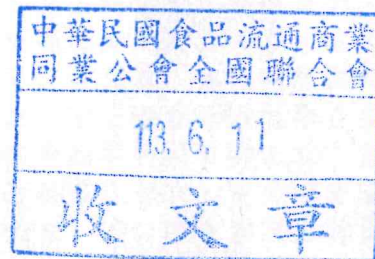 中華民國食品流通商業
同業公會全國聯合會
113. 6. 11
收文章